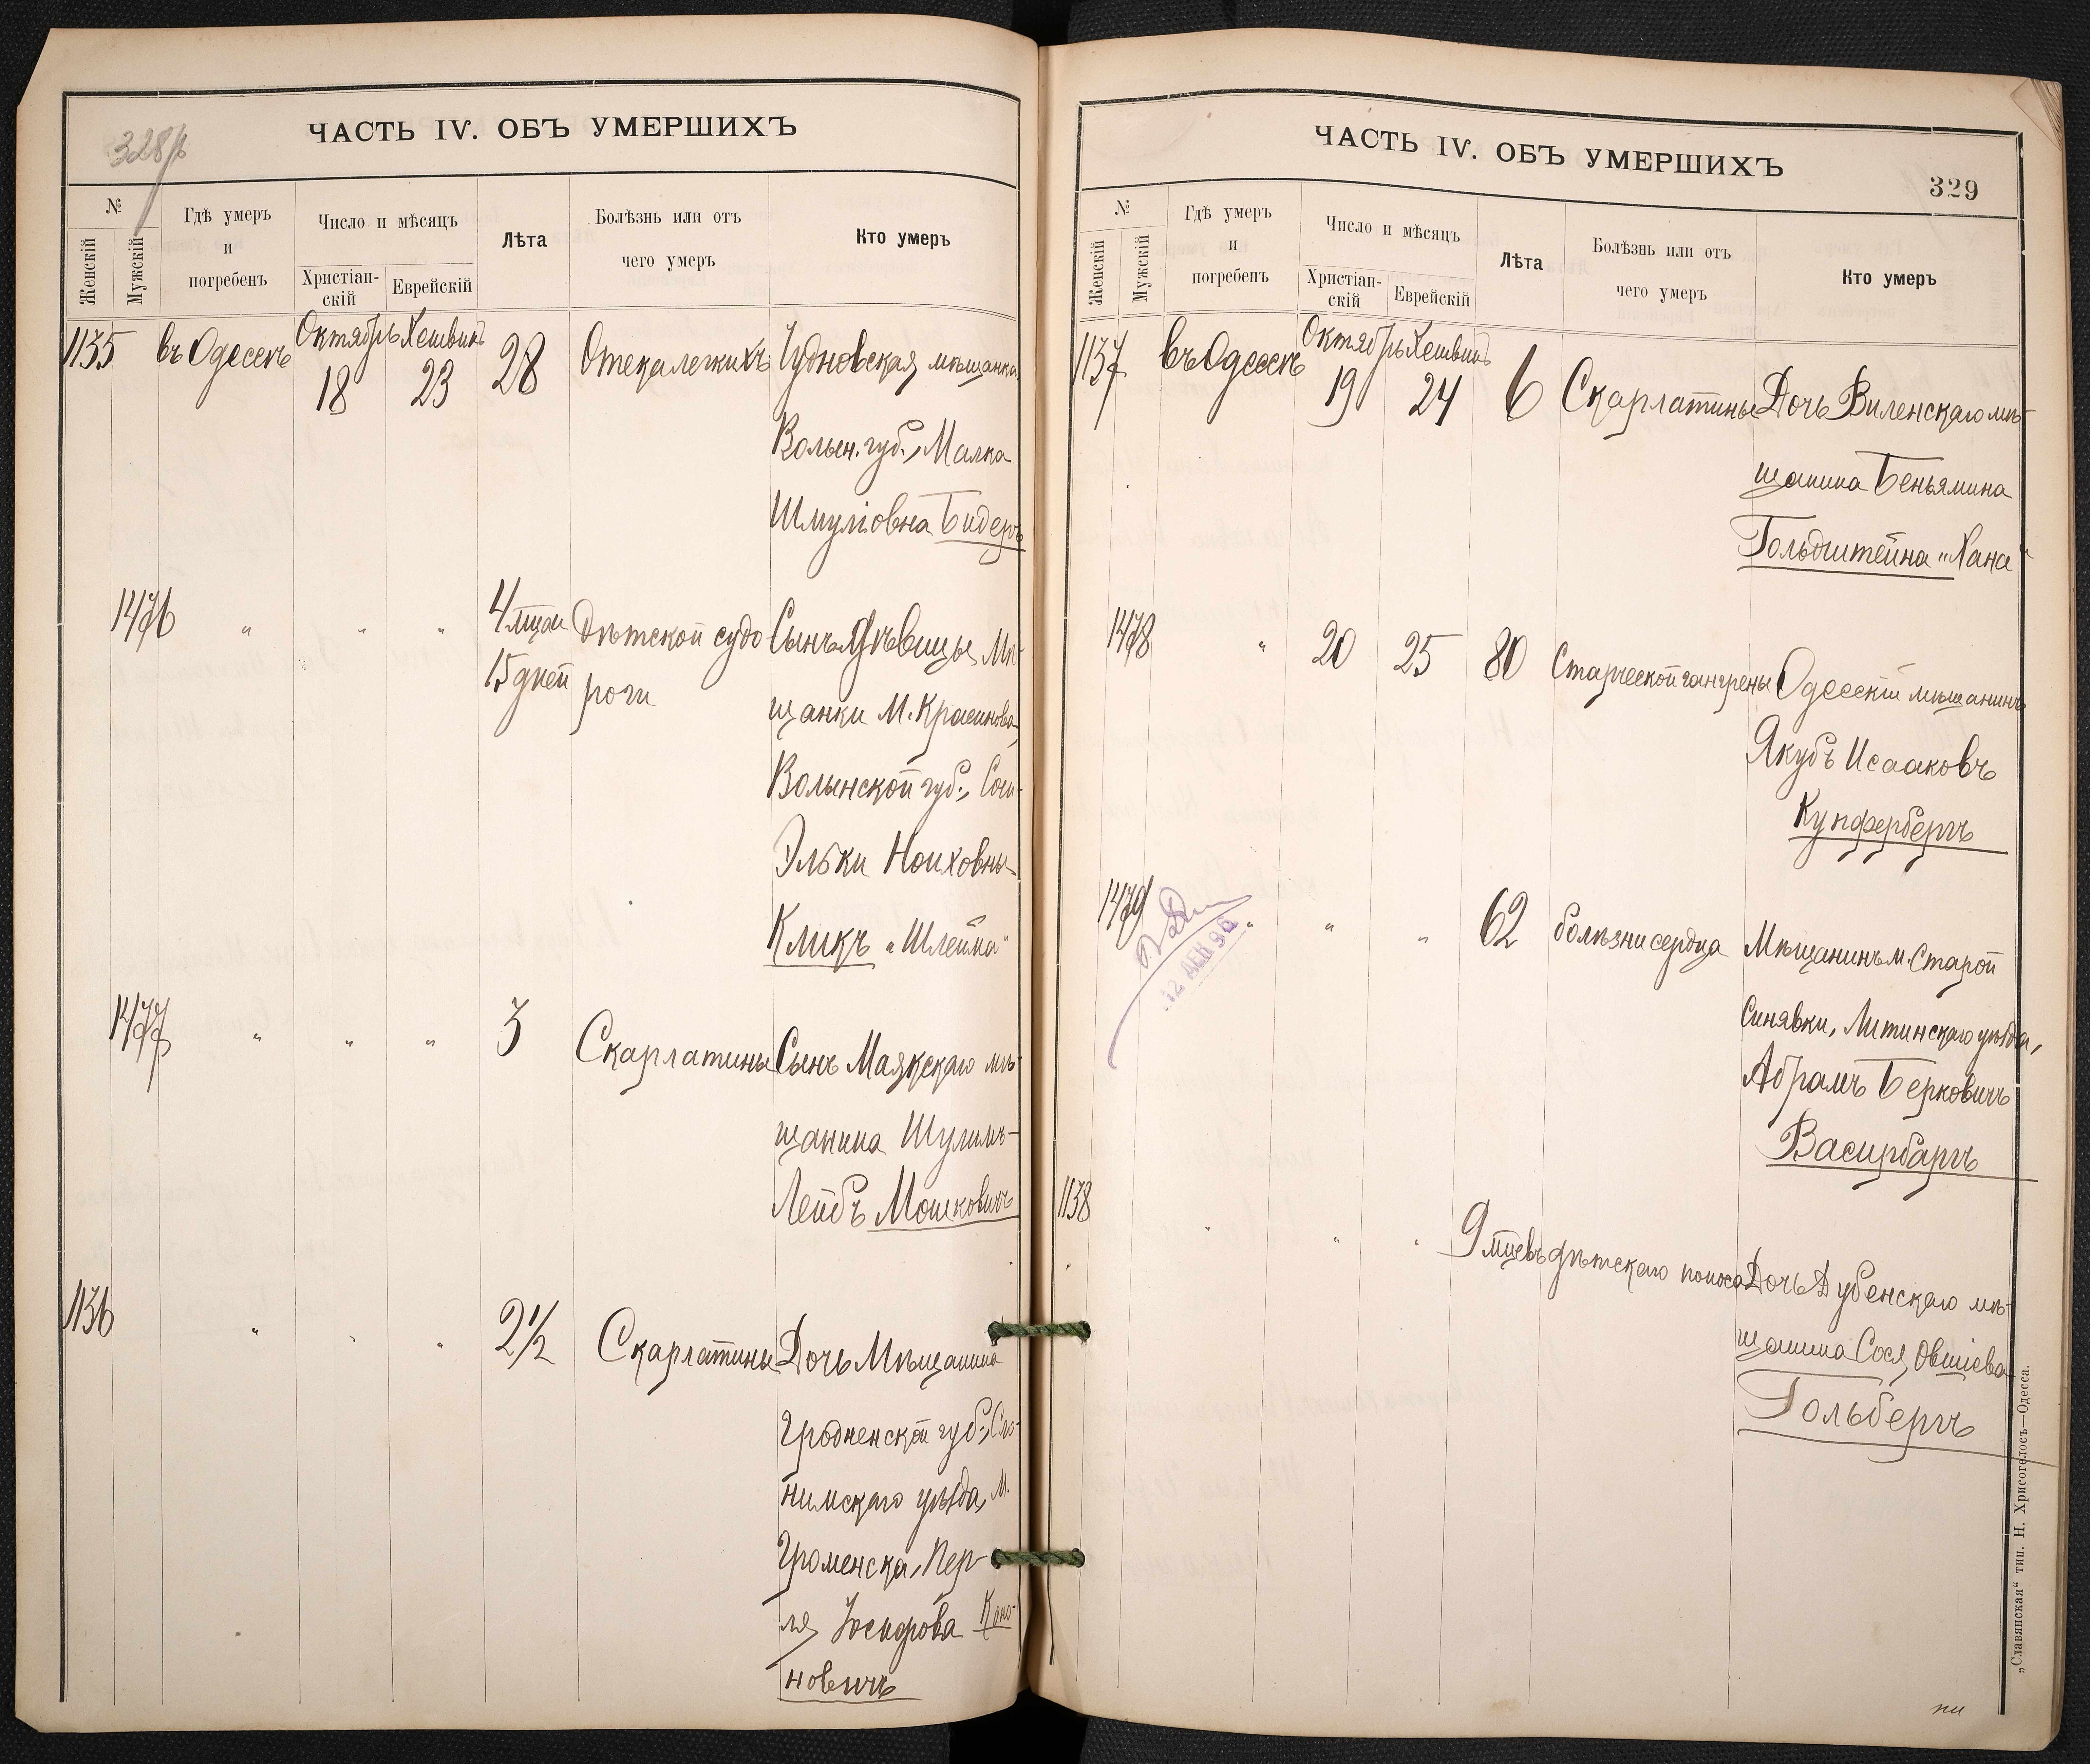 328/b
ЧАСТЬ IV. ОБЪ УМЕРШИХЪ
№
Женскій
Мужскій
Гдѣ умеръ
и
погребенъ
Число и мѣсяцъ
Христіан-
скій
Еврейскій
Лѣта
Болѣзнь или отъ
чего умеръ
Кто умеръ
1135 въ Одессѣ Октябрь 18 Хешвинъ 23 28 Отека легкихъ Чудновская мѣщанка
Волын. губ., Малка
Шмулiовна Бидеръ
1476 " " " 4 мцои Дѣтской судо- Сынъ дѣвицы, Мѣ-
15 дней роги щанки М. Красилова,
Волынской губ., Соси-
Эльки Ноиховны
Кликъ „Шлейма"
1477 " " " 3 Скарлатины Сынъ Маякскаго мѣ-
щанина Шулимъ-
Лейбъ Мошковичъ
1136 " " " 2½ Скарлатины Дочь Мѣщанина
Гродненской губ., Сло-
нимскаго уѣзда, м.
Пер-
ля Іосифова Коно-
новичъ
ЧАСТЬ IV. ОБЪ УМЕРШИХЪ
329
№
Женскій
Мужскій
Гдѣ умеръ
и
погребенъ
Число и мѣсяцъ
Христіан-
скій
Еврейскій
Лѣта
Болѣзнь или отъ
чего умеръ
Кто умеръ
1137 въ Одессѣ Октябрь 19 Хешвинъ 24 6 Скарлатины Дочь Виленскаго мѣ-
щанина Беньямина
Гольдштейна „Хана"
1478 " 20 25 80 Старческой гангрены Одесскій мѣщанинъ
Якубъ Исааковъ
Купфербергъ
1479 " " " 62 болѣзни сердца Мѣщанинъ м. Старой
Синявки, Литинскаго уѣзда,
Абрамъ Берковичъ
Васирбаргъ
12 ДЕК 96
1138 " " " 9 мцевъ дѣтскаго поноса Дочь Дубенскаго мѣ-
щанина Сося Овшiева
Гольбергъ
„Славянская" тип. Н. Хрисогелосъ—Одесса.